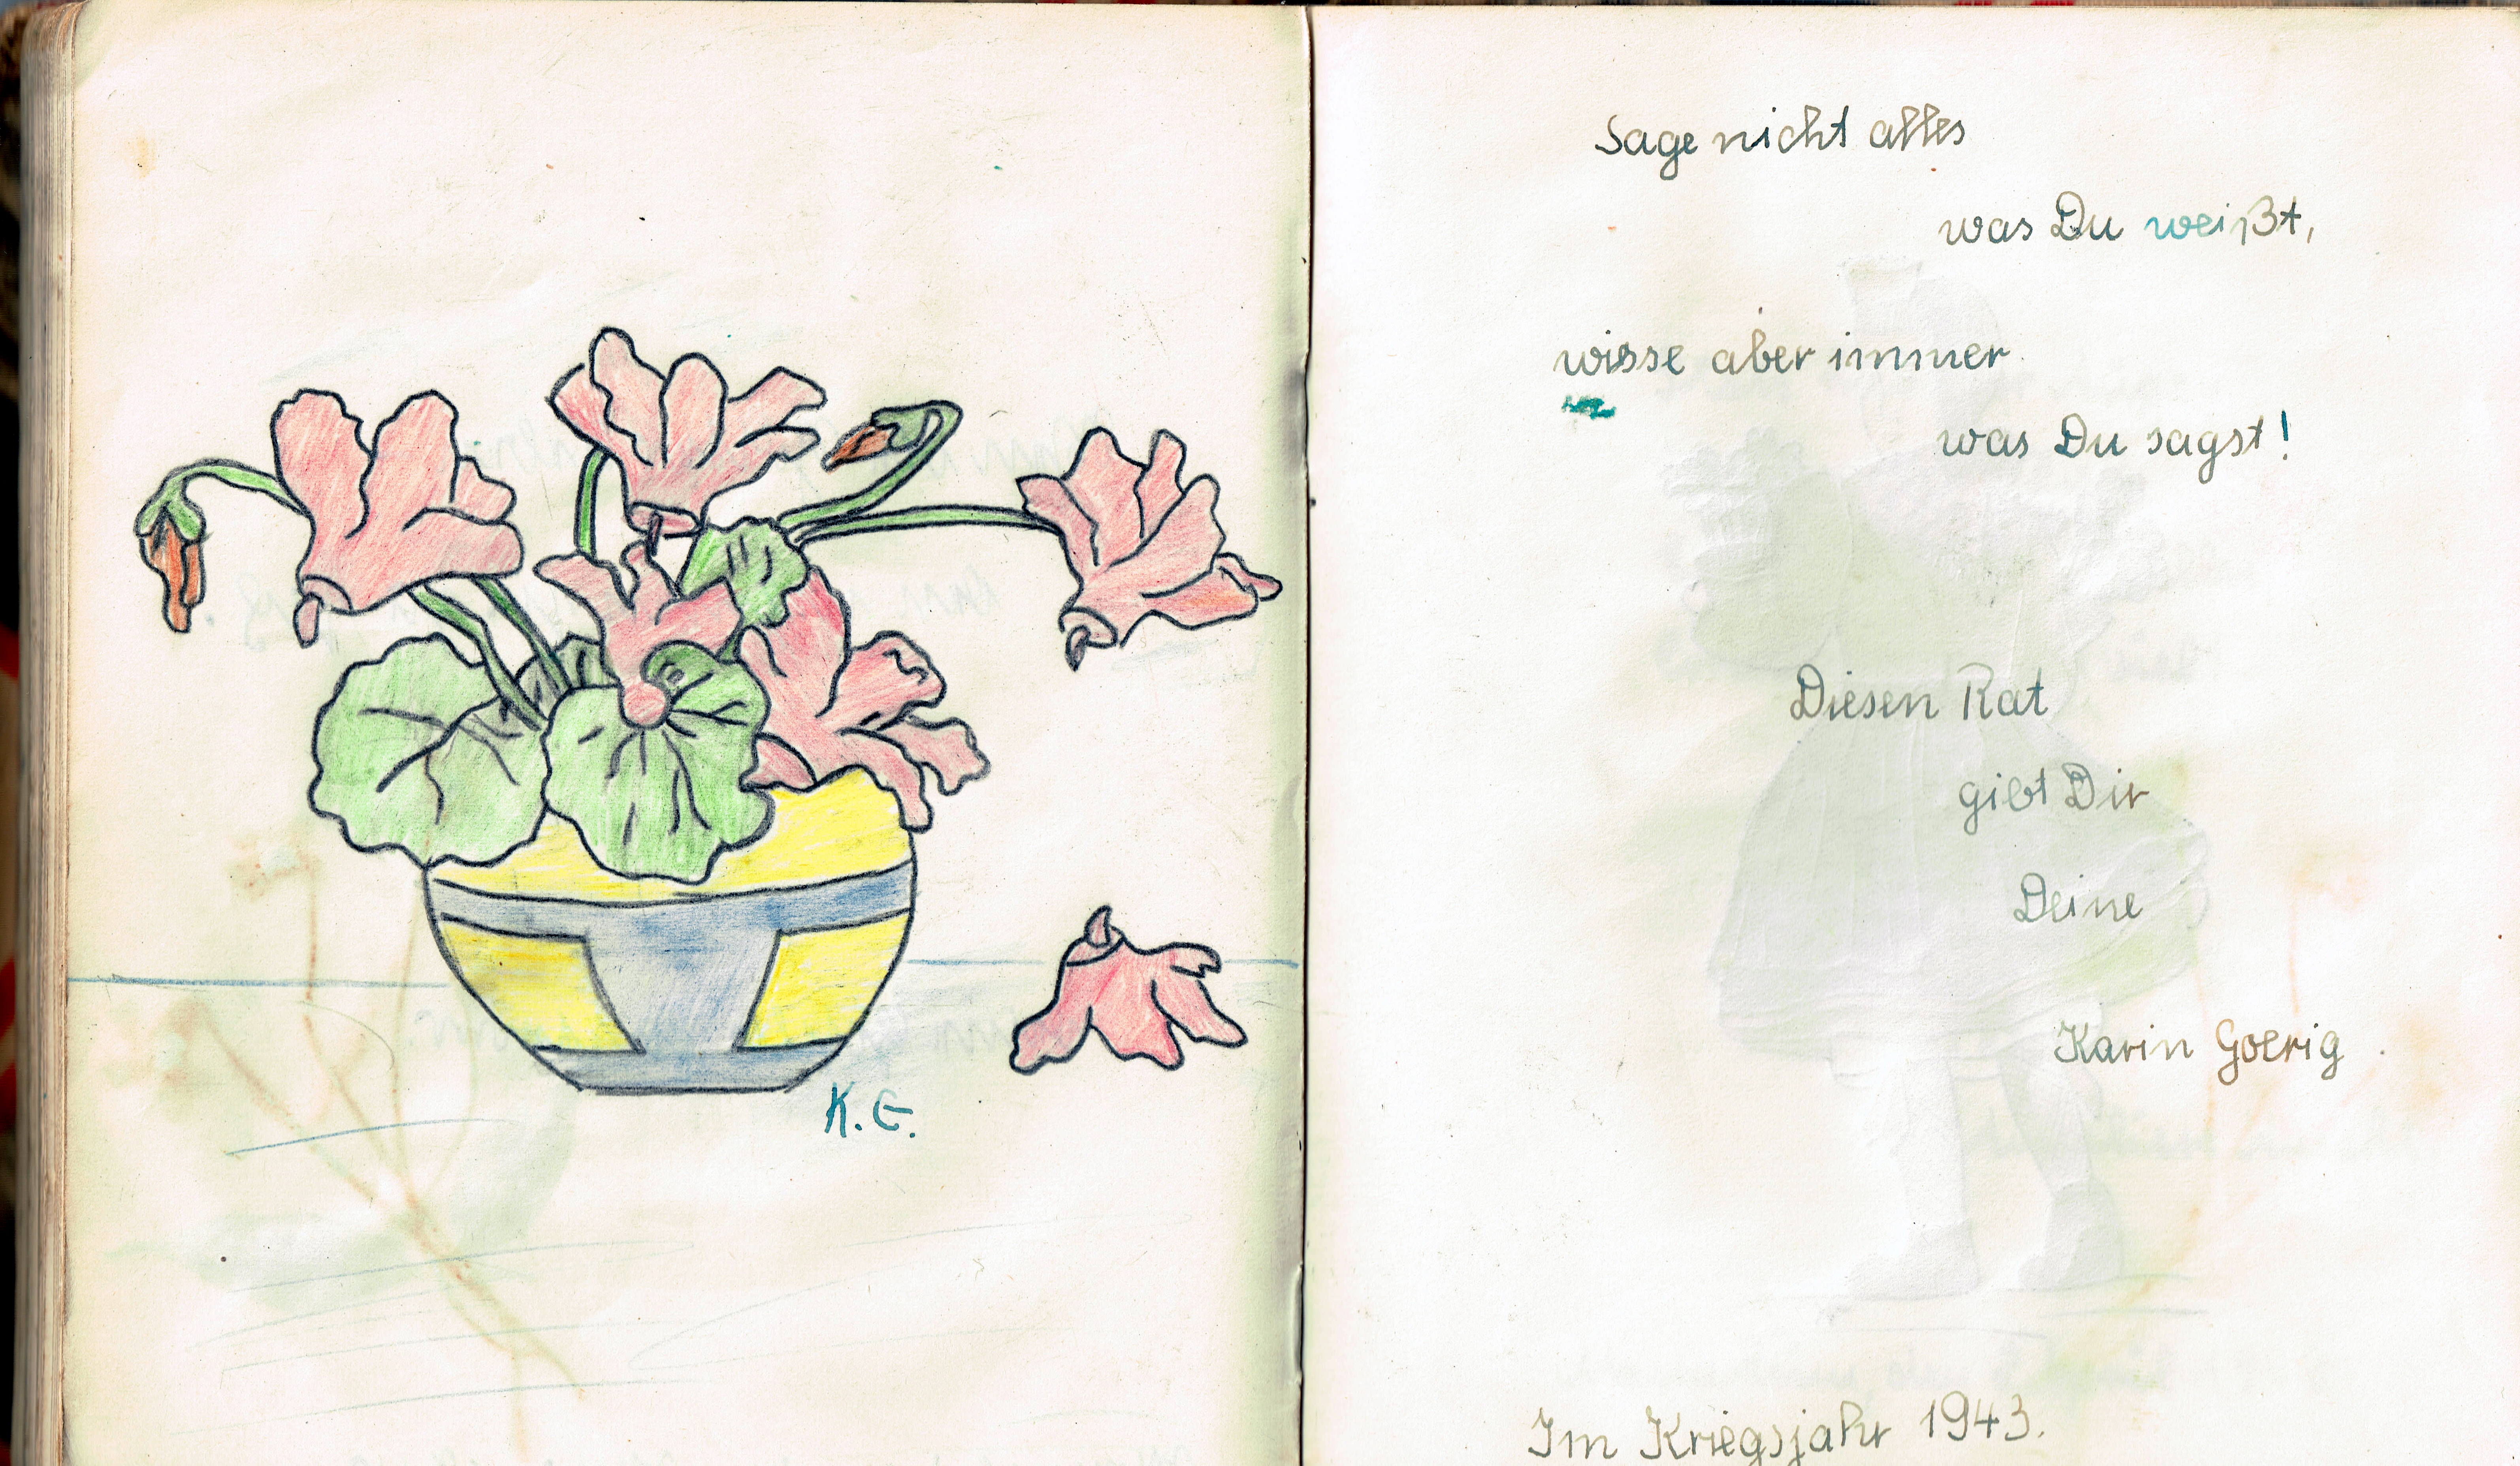 K. G.
Sage nicht alles
was Du weißt,
wisse aber immer
was Du sagst!
Diesen Rat
gibt Dir
Deine
Karin Goerig
Im Kriegsjahr 1943.